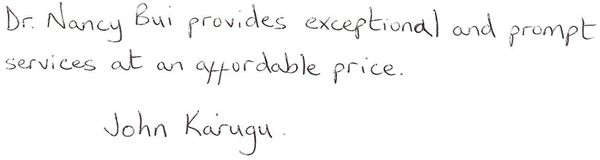 Dr. Nancy Bui provides exceptional and prompt
services at an affordable price.
John Karugu.